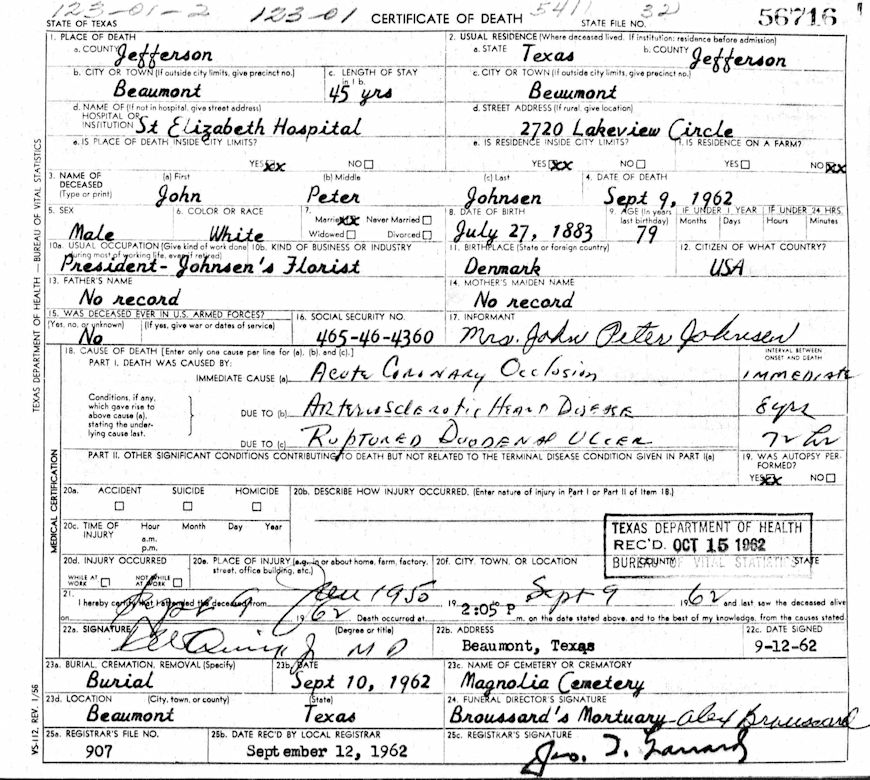 123-01-2 123-01 5411 32
STATE OF TEXAS CERTIFICATE OF DEATH STATE FILE NO. 56716
1. PLACE OF DEATH 2. USUAL RESIDENCE (Where deceased lived. If institution: residence before admission)
a. COUNTY Jefferson a. STATE Texas b. COUNTY Jefferson
b. CITY OR TOWN (If outside city limits, give precinct no.) c. LENGTH OF STAY in 1 b. c. CITY OR TOWN (If outside city limits, give precinct no.)
Beaumont 45 yrs Beaumont
d. NAME OF (If not in hospital, give street address) HOSPITAL OR INSTITUTION St Elizabeth Hospital d. STREET ADDRESS (If rural, give location)
2720 Lakeview Circle
e. IS PLACE OF DEATH INSIDE CITY LIMITS? e. IS RESIDENCE INSIDE CITY LIMITS? f. IS RESIDENCE ON A FARM?
YES xx NO YES xx NO YES NO xx
3. NAME OF DECEASED (Type or print) (a) First (b) Middle (c) Last 4. DATE OF DEATH
John Peter Johnsen Sept 9, 1962
5. SEX 6. COLOR OR RACE 7. Married xx Never Married Widowed Divorced 8. DATE OF BIRTH 9. AGE (In years last birthday) IF UNDER 1 YEAR Months Days IF UNDER 24 HRS. Hours Minutes
Male White July 27, 1883 79
10a. USUAL OCCUPATION (Give kind of work done during most of working life, even if retired) 10b. KIND OF BUSINESS OR INDUSTRY 11. BIRTHPLACE (State or foreign country) 12. CITIZEN OF WHAT COUNTRY?
President- Johnsen's Florist Denmark USA
13. FATHER'S NAME 14. MOTHER'S MAIDEN NAME
No record No record
15. WAS DECEASED EVER IN U.S. ARMED FORCES? 16. SOCIAL SECURITY NO. 17. INFORMANT
(Yes, no, or unknown) (If yes, give war or dates of service)
No 465-46-4360 Mrs. John Peter Johnsen
18. CAUSE OF DEATH [Enter only one cause per line for (a), (b), and (c).] INTERVAL BETWEEN ONSET AND DEATH
PART I. DEATH WAS CAUSED BY:
IMMEDIATE CAUSE (a) Acute Coronary Occlusion IMMEDIATE
Conditions, if any, which gave rise to above cause (a), stating the underlying cause last.
DUE TO (b) Arteriosclerotic Heart Disease 8 yrs
DUE TO (c) Ruptured Duodenal Ulcer 72 hr
PART II. OTHER SIGNIFICANT CONDITIONS CONTRIBUTING TO DEATH BUT NOT RELATED TO THE TERMINAL DISEASE CONDITION GIVEN IN PART I(a) 19. WAS AUTOPSY PERFORMED?
YES xx NO
20a. ACCIDENT SUICIDE HOMICIDE 20b. DESCRIBE HOW INJURY OCCURRED. (Enter nature of injury in Part I or Part II of Item 18.)
20c. TIME OF INJURY Hour a.m. p.m. Month Day Year
TEXAS DEPARTMENT OF HEALTH
REC'D. OCT 15 1962
BUREAU OF VITAL STATISTICS
20d. INJURY OCCURRED WHILE AT WORK NOT WHILE AT WORK 20e. PLACE OF INJURY (e.g., in or about home, farm, factory, street, office building, etc.) 20f. CITY, TOWN, OR LOCATION COUNTY STATE
21. I hereby certify that I attended the deceased from 1950 19 Sept 9 1962 and last saw the deceased alive
on Sept 9 1962 Death occurred at 2:05 P m. on the date stated above, and to the best of my knowledge, from the causes stated
22a. SIGNATURE (Degree or title) 22b. ADDRESS 22c. DATE SIGNED
M D Beaumont, Texas 9-12-62
23a. BURIAL, CREMATION, REMOVAL (Specify) 23b. DATE 23c. NAME OF CEMETERY OR CREMATORY
Burial Sept 10, 1962 Magnolia Cemetery
23d. LOCATION (City, town, or county) (State) 24. FUNERAL DIRECTOR'S SIGNATURE
Beaumont Texas Broussard's Mortuary- Alex Broussard
25a. REGISTRAR'S FILE NO. 25b. DATE REC'D BY LOCAL REGISTRAR 25c. REGISTRAR'S SIGNATURE
907 September 12, 1962
TEXAS DEPARTMENT OF HEALTH — BUREAU OF VITAL STATISTICS
MEDICAL CERTIFICATION
VS-112, REV. 1/56